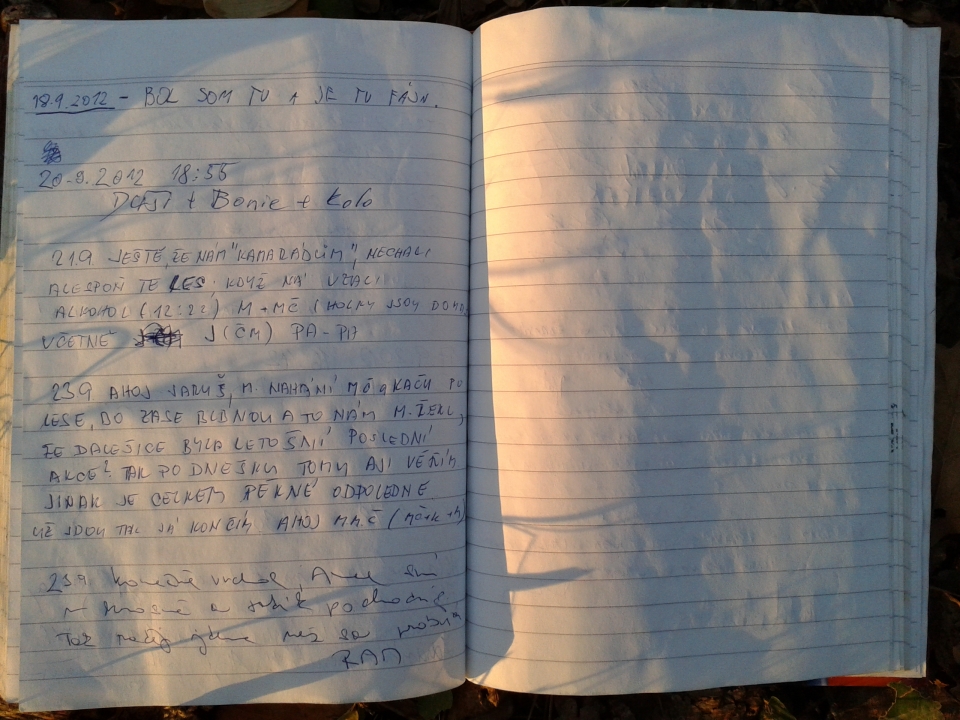 18.9.2012 - BOL SOM TU A JE TU FAJN.
20.9.2012 18:56
+ Bonie + Kolo
21.9 JEŠTĚ, ŽE NÁM "KAMARÁDŮM", NECHALI
ALESPOŇ TE LES. KDYŽ NÁ VZALI
ALKOHOL (12:22) M + MČ (HOLKY JSOU DOMA,
VČETNĚ J (ČM) PA-PA
23.9 AHOJ JARUŠ, M. NAHÁNÍ MČ a KAČU PO
LESE, DO ZASE BLBNOU A TO NÁM M. ŘEKL,
ŽE DALEŠICE BYLA LETOŠNÍ POSLEDNÍ
AKCE? TAK PO DNEŠKU TOMU AJI VĚŘÍM
JINAK JE CELKEM PĚKNÉ ODPOLEDNE
UŽ JDOU TAK JÁ KONČÍM AHOJ MMČ (MČ+K+M)
23.9 konečně vrchol,
a
Tož jdeme než sa
RAM